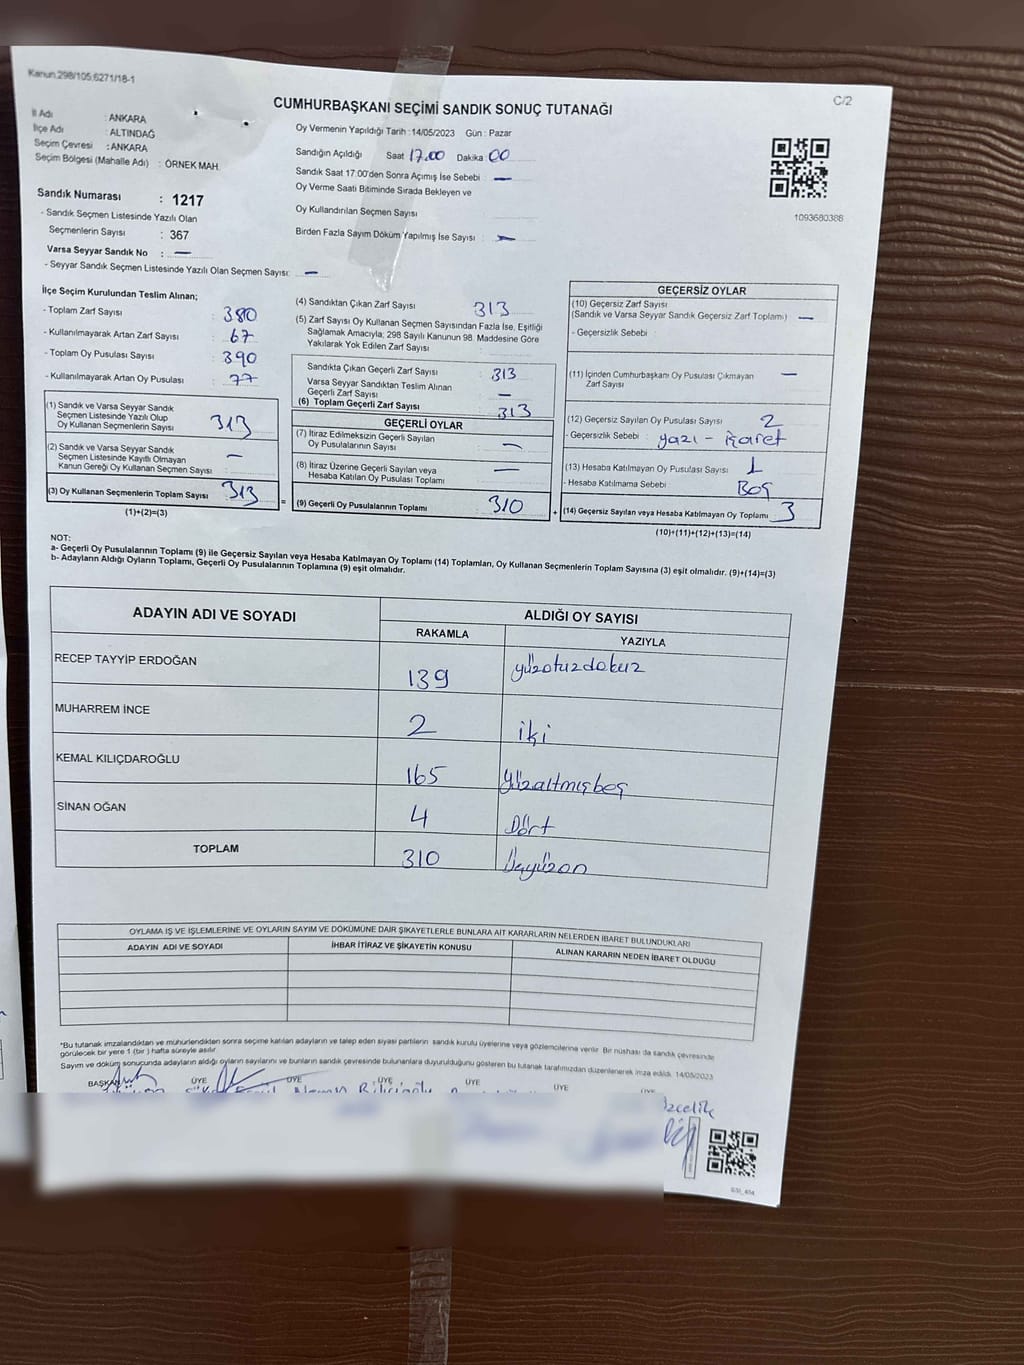 Kanun.298/105,6271/18-1
C/2
CUMHURBAŞKANI SEÇİMİ SANDIK SONUÇ TUTANAĞI
İl Adı : ANKARA
İlçe Adı : ALTINDAĞ
Seçim Çevresi : ANKARA
Seçim Bölgesi (Mahalle Adı) : ÖRNEK MAH.
Sandık Numarası : 1217
- Sandık Seçmen Listesinde Yazılı Olan
Seçmenlerin Sayısı : 367
Varsa Seyyar Sandık No : —
- Seyyar Sandık Seçmen Listesinde Yazılı Olan Seçmen Sayısı: —
Oy Vermenin Yapıldığı Tarih :14/05/2023 Gün : Pazar
Sandığın Açıldığı Saat 17.00 Dakika : 00
Sandık Saat 17.00'den Sonra Açımış İse Sebebi : —
Oy Verme Saati Bitiminde Sırada Bekleyen ve
Oy Kullandırılan Seçmen Sayısı :
Birden Fazla Sayım Döküm Yapılmış İse Sayısı : —
1093680388
İlçe Seçim Kurulundan Teslim Alınan;
- Toplam Zarf Sayısı : 380
- Kullanılmayarak Artan Zarf Sayısı : 67
- Toplam Oy Pusulası Sayısı : 390
- Kullanılmayarak Artan Oy Pusulası : 77
(1) Sandık ve Varsa Seyyar Sandık
Seçmen Listesinde Yazılı Olup
Oy Kullanan Seçmenlerin Sayısı : 313
(2) Sandık ve Varsa Seyyar Sandık
Seçmen Listesinde Kayıtlı Olmayan
Kanun Gereği Oy Kullanan Seçmen Sayısı : —
(3) Oy Kullanan Seçmenlerin Toplam Sayısı : 313
(1)+(2)=(3)
=
(4) Sandıktan Çıkan Zarf Sayısı 313
(5) Zarf Sayısı Oy Kullanan Seçmen Sayısından Fazla İse, Eşitliği
Sağlamak Amacıyla; 298 Sayılı Kanunun 98. Maddesine Göre
Yakılarak Yok Edilen Zarf Sayısı :
Sandıkta Çıkan Geçerli Zarf Sayısı : 313
Varsa Seyyar Sandıktan Teslim Alınan
Geçerli Zarf Sayısı : —
(6) Toplam Geçerli Zarf Sayısı : 313
GEÇERLİ OYLAR
(7) İtiraz Edilmeksizin Geçerli Sayılan
Oy Pusulalarının Sayısı : —
(8) İtiraz Üzerine Geçerli Sayılan veya
Hesaba Katılan Oy Pusulası Toplamı : —
(9) Geçerli Oy Pusulalarının Toplamı : 310
+
GEÇERSİZ OYLAR
(10) Geçersiz Zarf Sayısı
(Sandık ve Varsa Seyyar Sandık Geçersiz Zarf Toplamı) : —
- Geçersizlik Sebebi :
(11) İçinden Cumhurbaşkanı Oy Pusulası Çıkmayan
Zarf Sayısı : —
(12) Geçersiz Sayılan Oy Pusulası Sayısı : 2
- Geçersizlik Sebebi : yazı - işaret
(13) Hesaba Katılmayan Oy Pusulası Sayısı : 1
- Hesaba Katılmama Sebebi : Boş
(14) Geçersiz Sayılan veya Hesaba Katılmayan Oy Toplamı : 3
(10)+(11)+(12)+(13)=(14)
NOT:
a- Geçerli Oy Pusulalarının Toplamı (9) ile Geçersiz Sayılan veya Hesaba Katılmayan Oy Toplamı (14) Toplamları, Oy Kullanan Seçmenlerin Toplam Sayısına (3) eşit olmalıdır. (9)+(14)=(3)
b- Adayların Aldığı Oyların Toplamı, Geçerli Oy Pusulalarının Toplamına (9) eşit olmalıdır.
ADAYIN ADI VE SOYADI ALDIĞI OY SAYISI
RAKAMLA YAZIYLA
RECEP TAYYİP ERDOĞAN 139 yüzotuzdokuz
MUHARREM İNCE 2 iki
KEMAL KILIÇDAROĞLU 165 yüzaltmışbeş
SİNAN OĞAN 4 Dört
TOPLAM 310 Üçyüzon
OYLAMA İŞ VE İŞLEMLERİNE VE OYLARIN SAYIM VE DÖKÜMÜNE DAİR ŞİKAYETLERLE BUNLARA AİT KARARLARIN NELERDEN İBARET BULUNDUKLARI
ADAYIN ADI VE SOYADI İHBAR İTİRAZ VE ŞİKAYETİN KONUSU ALINAN KARARIN NEDEN İBARET OLDUĞU
*Bu tutanak imzalandıktan ve mühürlendikten sonra seçime katılan adayların ve talep eden siyasi partilerin sandık kurulu üyelerine veya gözlemcilerine verilir. Bir nüshası da sandık çevresinde
görülecek bir yere 1 (bir ) hafta süreyle asılır.
Sayım ve döküm sonucunda adayların aldığı oyların sayılarını ve bunların sandık çevresinde bulunanlara duyurulduğunu gösteren bu tutanak tarafımızdan düzenlenerek imza edildi. 14/05/2023
BAŞKAN ÜYE ÜYE ÜYE ÜYE ÜYE ÜYE